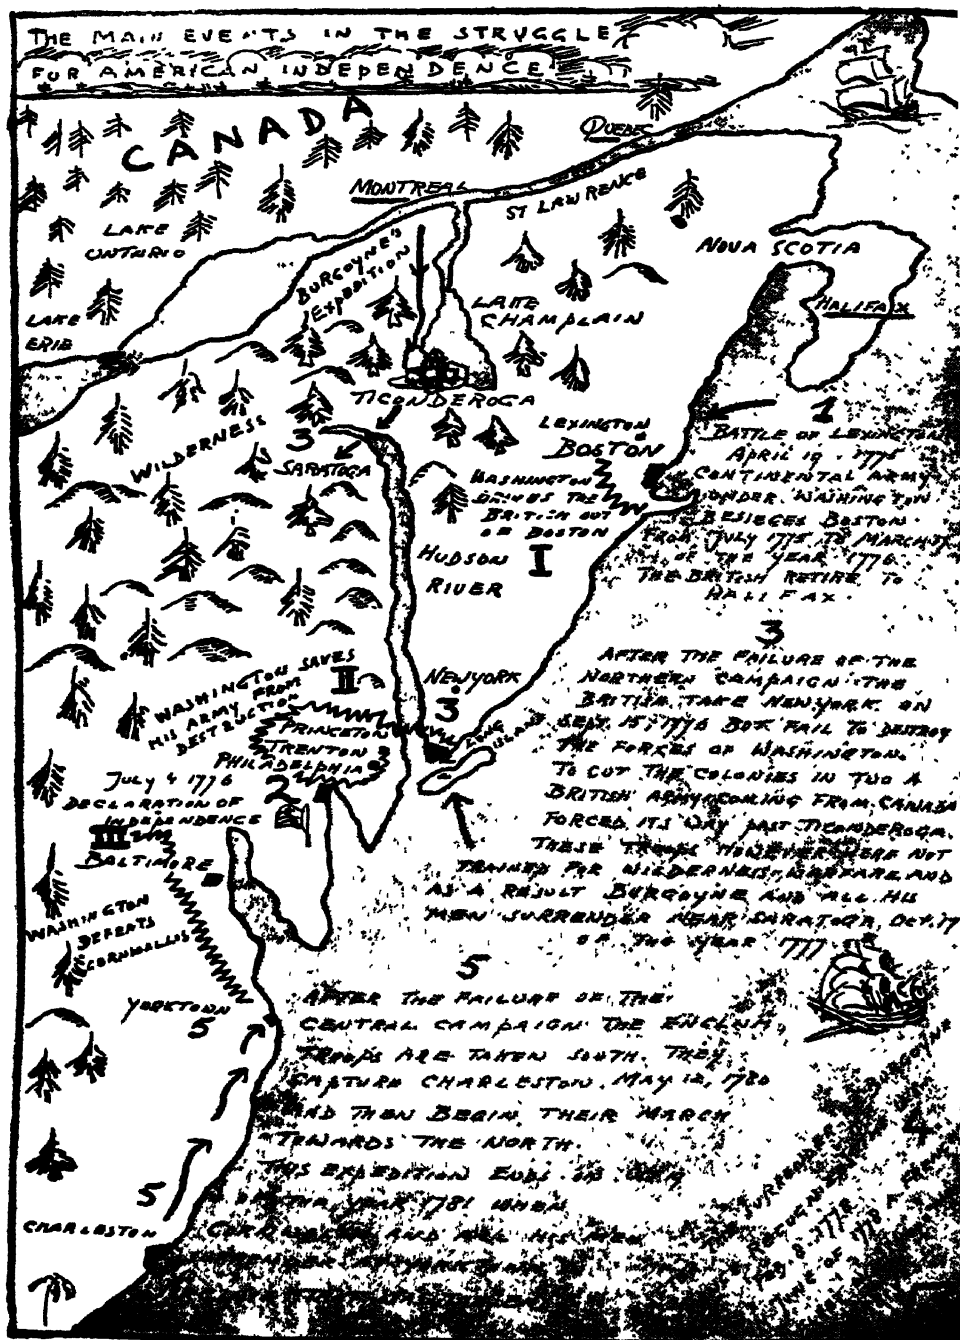 THE MAIN EVENTS IN THE STRUGGLE
FOR AMERICAN INDEPENDENCE
CANADA
QUEBEC
MONTREAL
ST LAWRENCE
LAKE
ONTARIO
NOVA SCOTIA
HALIFAX
BURGOYNE'S
EXPEDITION
LAKE
CHAMPLAIN
LAKE
ERIE
TICONDEROGA
WILDERNESS
3
SARATOGA
LEXINGTON
BOSTON
WASHINGTON
DRIVES THE
BRITISH OUT
OF BOSTON
I
HUDSON
RIVER
1
BATTLE OF LEXINGTON
APRIL 19. 1775
CONTINENTAL ARMY
UNDER WASHINGTON
BESIEGES BOSTON.
FROM JULY 1775 TO MARCH 17
OF THE YEAR 1776
THE BRITISH RETIRE TO
HALIFAX.
WASHINGTON SAVES
HIS ARMY FROM
DESTRUCTION
II
NEWYORK
3
LONG
ISLAND
PRINCETON
TRENTON
PHILADELPHIA
2
JULY 4 1776
DECLARATION OF
INDEPENDENCE
3
AFTER THE FAILURE OF THE
NORTHERN CAMPAIGN THE
BRITISH TAKE NEWYORK ON
SEPT. 15, 1776 BUT FAIL TO DESTROY
THE FORCES OF WASHINGTON.
TO CUT THE COLONIES IN TWO A
BRITISH ARMY COMING FROM CANADA
FORCED ITS WAY PAST TICONDEROGA.
THESE TROOPS HOWEVER WERE NOT
TRAINED FOR WILDERNESS WARFARE AND
AS A RESULT BURGOYNE AND ALL HIS
MEN SURRENDER NEAR SARATOGA, OCT. 17
OF THE YEAR 1777
III
BALTIMORE
WASHINGTON
DEFEATS
CORNWALLIS
YORKTOWN
5
5
AFTER THE FAILURE OF THE
CENTRAL CAMPAIGN THE ENGLISH
TROOPS ARE TAKEN SOUTH. THEY
CAPTURE CHARLESTON. MAY 12, 1780
AND THEN BEGIN THEIR MARCH
TOWARDS THE NORTH.
THIS EXPEDITION ENDS
OF THE YEAR 1781 WHEN
AND ALL HIS MEN
5
CHARLESTON
4
BURGOYNE
SURRENDER
1778
OF 1778